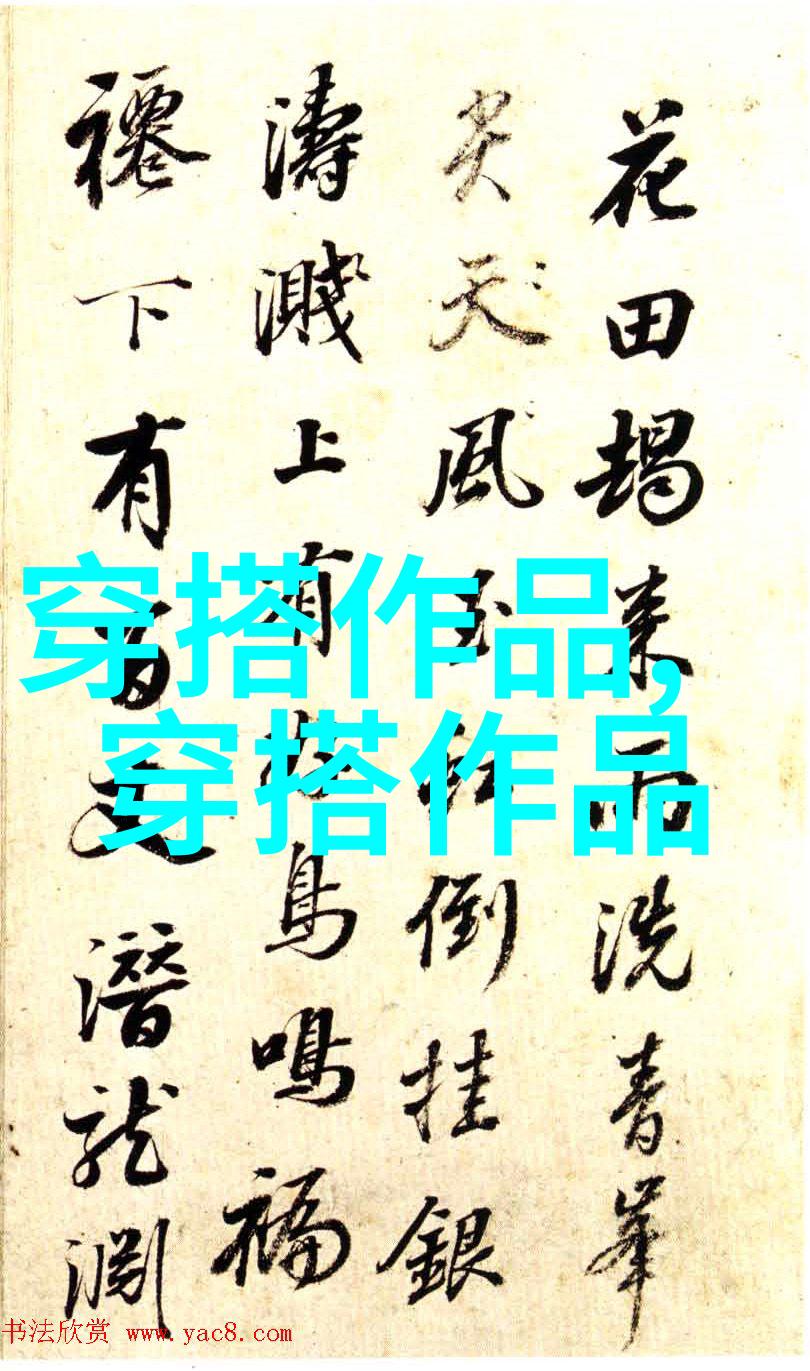 穿搭作品,
穿搭作品
花田来雨洗青峯
尖天風玉虹倒挂銀
濤濺上有鳥鳴福
下有潛龍淵
书法欣赏 www.yac8.com